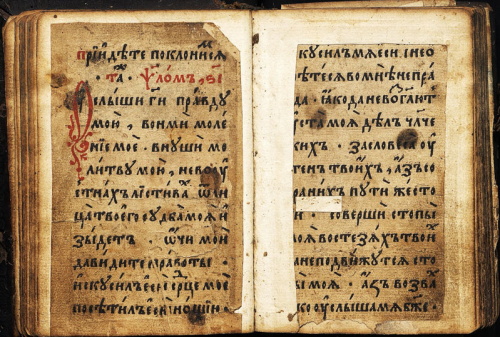 прїидѣте поклонимсѧ
· г҃ · ѱало́мъ, ѕ҃і
Оу҆слыши гг҃и пра́вду
мою̀, вонми моле
нїе моѐ · внꙋши мо
литвꙋ мою̀, не воꙋ
стнахъ лстива · ѿли
ца твоегѡ сꙋдба моѧ и
зыдетъ · ѻ҆чи мои
да видите правоты ·
и҆скꙋсилъ е҆сѝ срⷣце мое
посѣтилъ е҆сѝ нощїи ·
кꙋсилъ мѧ е҆сѝ · и не ѻ
брѣтесѧ во мнѣ непра
да · ꙗ҆ко да не возг҃лют
ꙋста моѧ дѣлъ чл҃че
кихъ · за словеса оу
тенъ твоихъ, а҆зъ со
ранихъ пꙋти жесто
и · соверши стопы
моѧ во стезѧхъ твои
а не подвижꙋтсѧ сто
ы моѧ · а҆зъ возва
ко ꙋслыша мѧ бж҃е ·